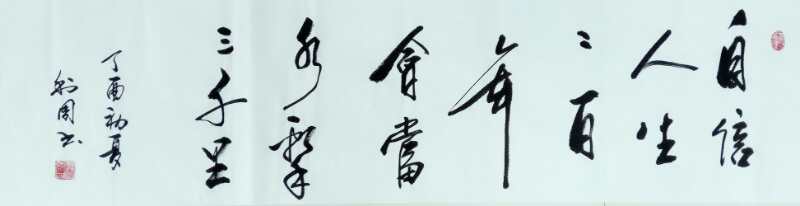 自信
人生
二百
年
會當
水擊
三千里
丁酉初夏
利周书